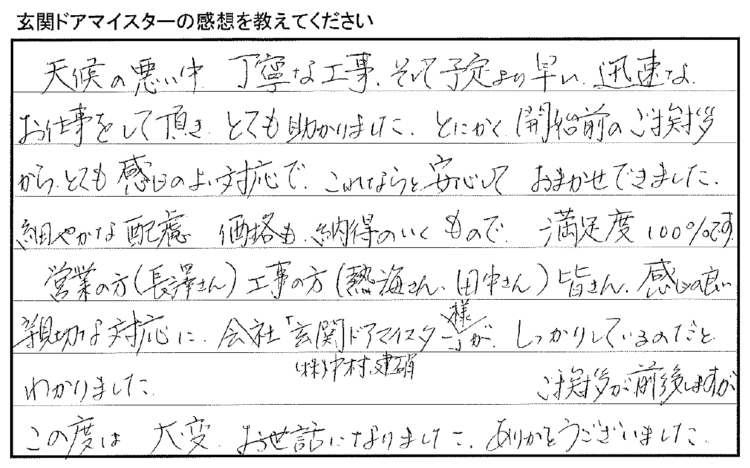 玄関ドアマイスターの感想を教えてください
天候の悪い中 丁寧な工事、そして予定より早い、迅速な
お仕事をして頂き、とても助かりました、とにかく、開始前のご挨拶
から、とても感じのよい対応で、これならと安心して おまかせできました。
細やかな配慮 価格も、納得のいくもので、満足度100%です
営業の方(長澤さん)工事の方(熱海さん、田中さん)皆さん、感じの良い
親切な対応に、会社「玄関ドアマイスター様」が、しっかりしているのだと
(株)中村建硝
わかりました。 ご挨拶が前後しますが
この度は 大変 お世話になりました、ありがとうございました。